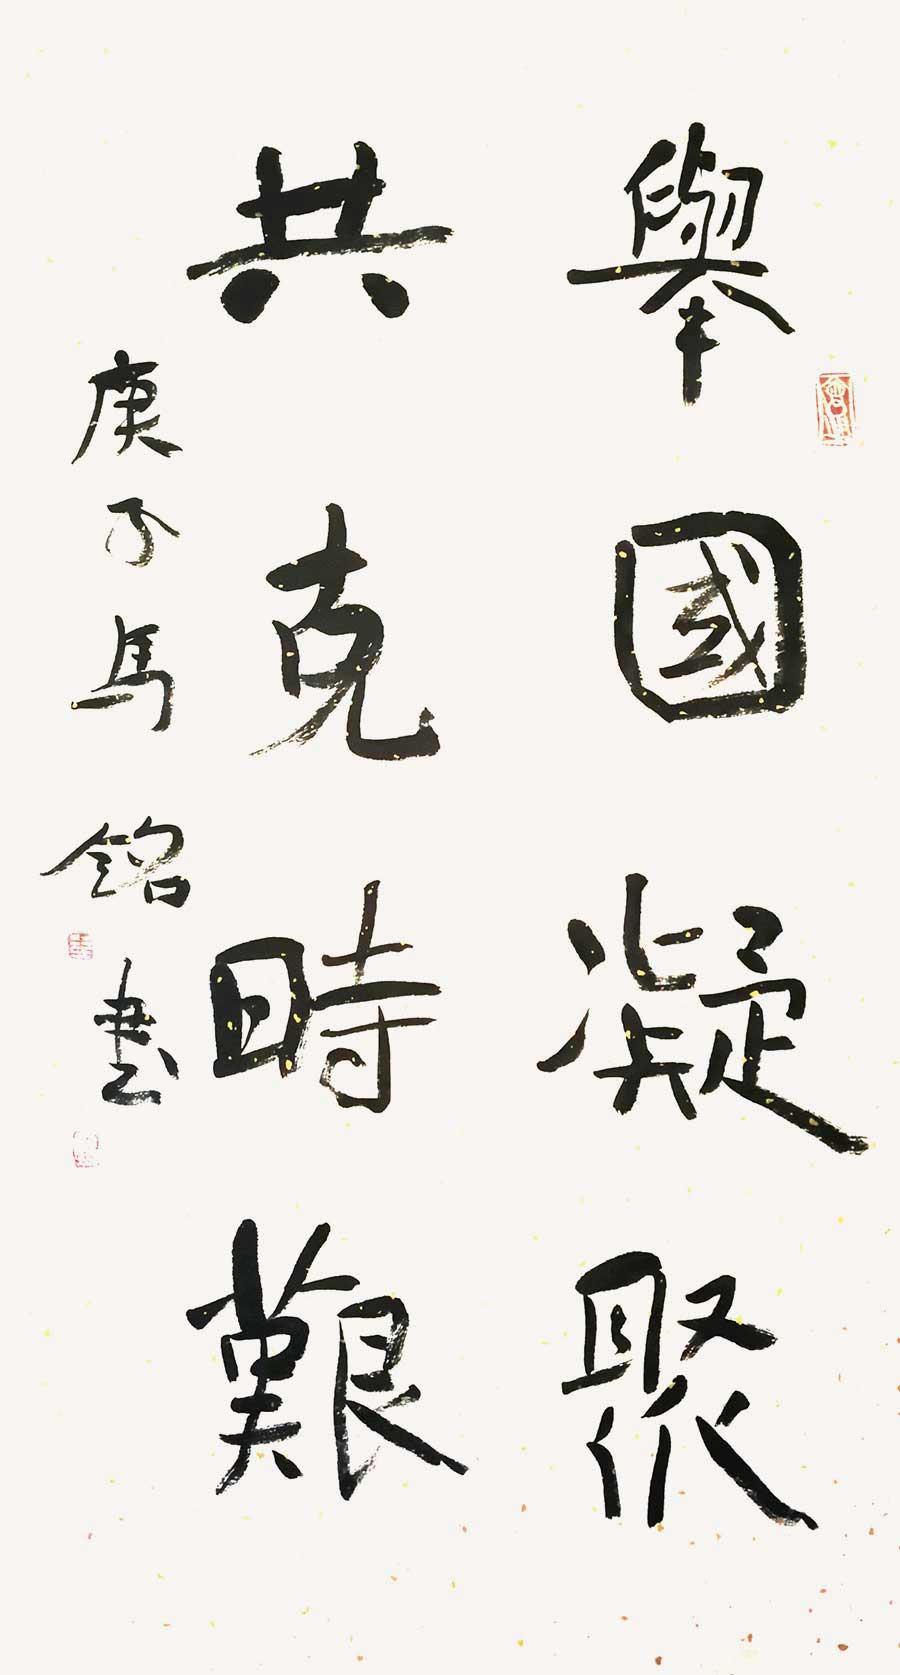 舉國凝聚
共克時艱
庚子馬銘書